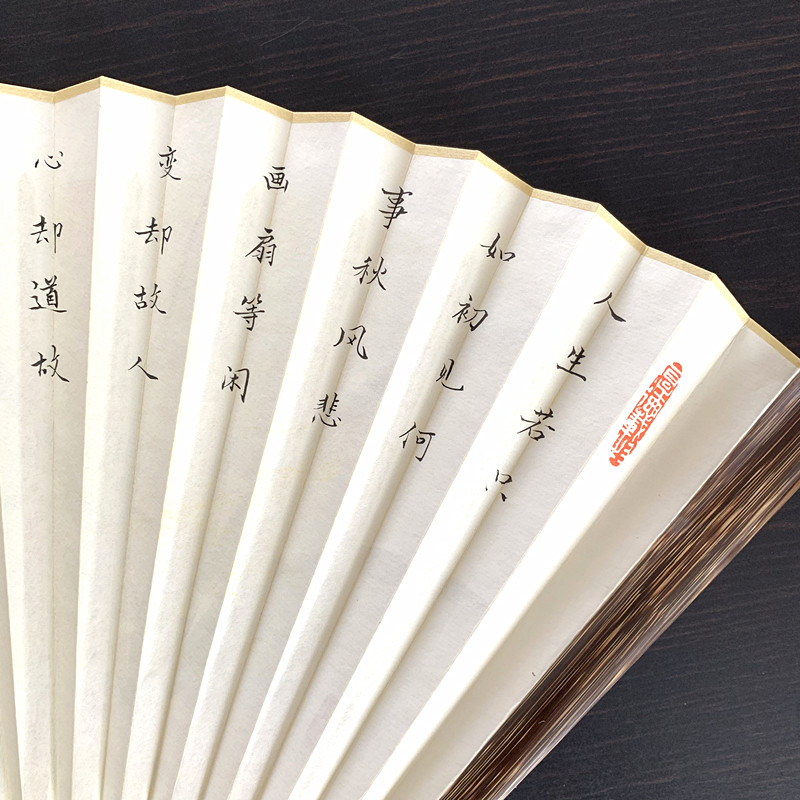 人生若只
如初见何
事秋风悲
画扇等闲
变却故人
心却道故